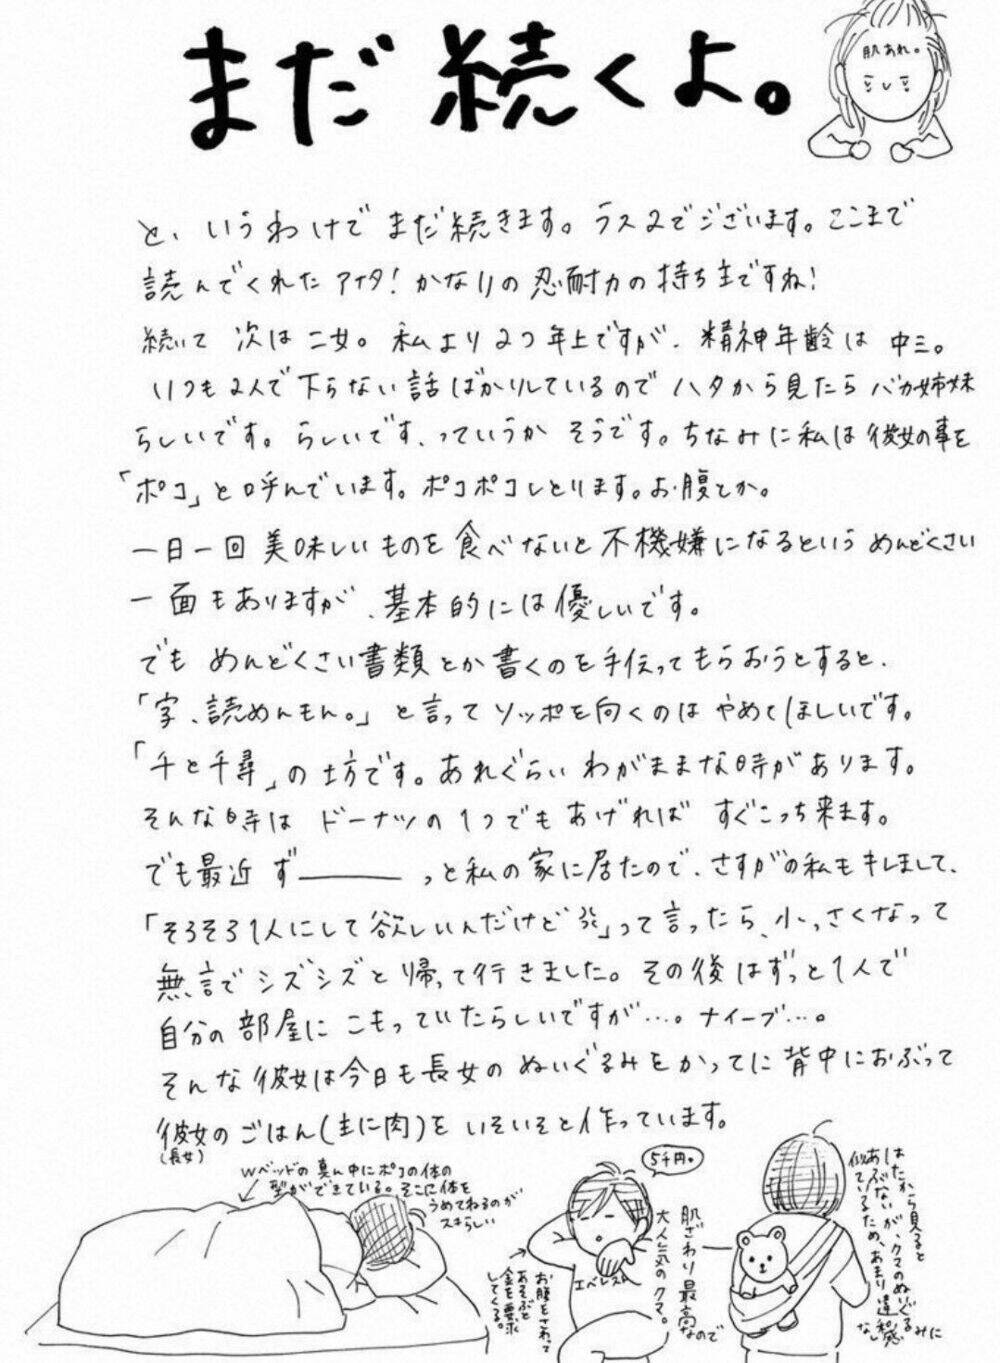 まだ続くよ。
肌あれ。
と、いうわけでまだ続きます。ラス2でございます。ここまで
読んでくれたアイタ!かなりの忍耐力の持ち主ですね!
続いて次は二女。私より2つ年上ですが、精神年齢は中三。
いつも2人で下らない話ばかりしているのでハタから見たらバカ姉妹
らしいです。らしいです、っていうかそうです。ちなみに私は彼女の事を
「ポコ」と呼んでいます。ポコポコしとります。お腹とか。
一日一回美味しいものを食べないと不機嫌になるというめんどくさい
一面もありますが、基本的には優しいです。
でもめんどくさい書類とか書くのを手伝ってもらおうとすると、
「字、読めんもん。」と言ってソッポを向くのはやめてほしいです。
「千と千尋」の坊です。あれぐらいわがままな時があります。
そんな時はドーナツの1つでもあげればすぐこっち来ます。
でも最近ず――――っと私の家に居たので、さすがの私もキレまして、
「そろそろ1人にして欲しいんだけど」って言ったら、小っさくなって
無言でシズシズと帰って行きました。その後はずっと1人で
自分の部屋にこもっていたらしいですが…。ナイーブ…。
そんな彼女は今日も長女のぬいぐるみをかってに背中におぶって
彼女のごはん(主に肉)をいそいそと作っています。
(長女)
Wベッドの真ん中にポコの体の
型ができている。そこに体を
うめてねるのが
スキらしい
5千円。
エベレスト
お腹をさわって
あそぶと
金を要求
してくる。
肌ざわり最高なので
大人気のクマ。
はたから見ると
あぶないが、クマのぬいぐるみに
似ているため、あまり違和感
なし